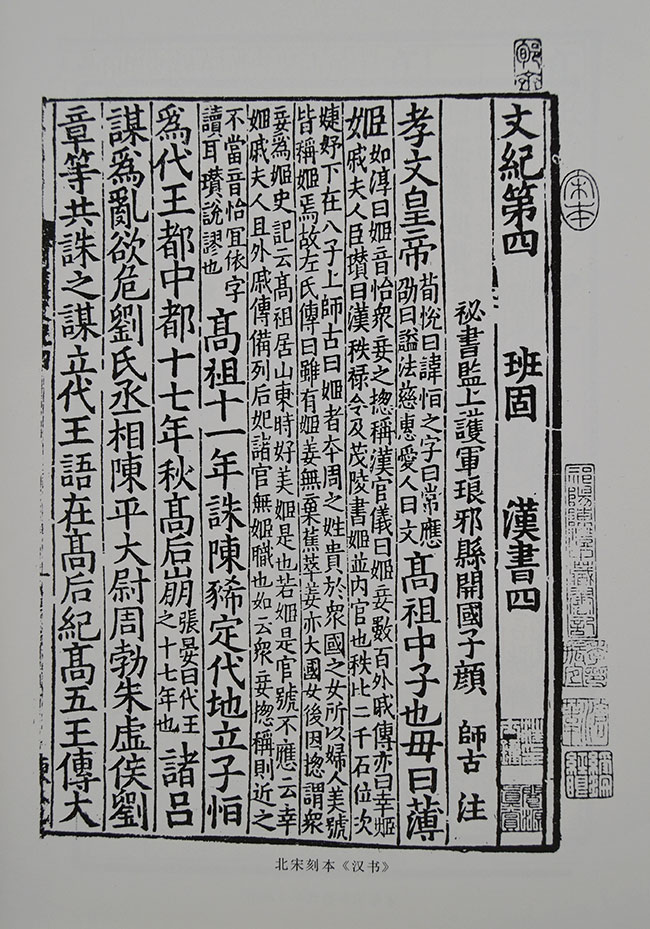 文紀第四 班固 漢書四
祕書監上護軍琅邪縣開國子顏 師古 注
孝文皇帝
荀悅曰諱恒之字曰常應
劭曰謚法慈惠愛人曰文
高祖中子也母曰薄
姬
如淳曰姬音怡衆妾之揔稱漢官儀曰姬妾數百外戚傳亦曰幸姬
姬戚夫人臣瓚曰漢秩禄令及茂陵書姬並内官也秩比二千石位次
婕妤下在八子上師古曰姬者本周之姓貴於衆國之女所以婦人美號
皆稱姬焉故左氏傳曰雖有姬姜無棄蕉萃姜亦大國女後因揔謂衆
妾爲姬史記云髙祖居山東時好美姬是也若姬是官號不應云幸
姬戚夫人且外戚傳備列后妃諸官無姬職也如云衆妾揔稱則近之
不當音怡冝依字
讀耳瓚說謬也
髙祖十一年誅陳豨定代地立子恒
爲代王都中都十七年秋髙后崩
張晏曰代王
之十七年也
諸呂
謀爲亂欲危劉氏丞相陳平大尉周勃朱虛侯劉
章等共誅之謀立代王語在髙后紀髙五王傳大
宋本
北宋刻本《汉书》